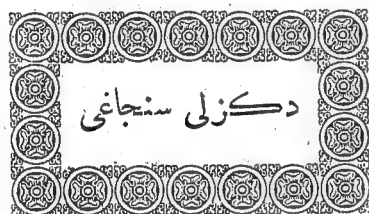 دكزلى سنجاغى